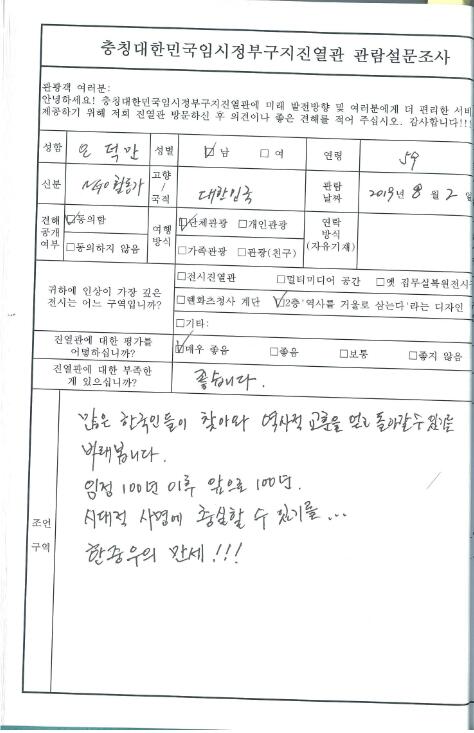 충칭대한민국임시정부구지진열관 관람설문조사
관광객 여러분:
안녕하세요! 충칭대한민국임시정부구지진열관에 미래 발전방향 및 여러분에게 더 편리한 서비
제공하기 위해 저희 진열관 방문하신 후 의견이나 좋은 견해를 적어 주십시오. 감사합니다!!!
성함 오덕만 성별 ☑남 □여 연령 59
신분 NGO활동가 고향/국적 대한민국 관람날짜 2019년 8월 2일
견해공개여부 ☑동의함 □동의하지 않음 여행방식 ☑단체관광 □개인관광 □가족관광 □관광(친구) 연락방식(자유기재)
귀하에 인상이 가장 깊은 전시는 어느 구역입니까?
□전시진열관 □멀티미디어 공간 □옛 집무실복원전시
□렌화츠청사 계단 ☑2층'역사를 거울로 삼는다'라는 디자인
□기타:
진열관에 대한 평가를 어떻하십니까? ☑매우 좋음 □좋음 □보통 □좋지 않음
진열관에 대한 부족한 게 있으십니까? 좋습니다.
조언구역
많은 한국인들이 찾아와 역사적 교훈을 얻고 돌아갈 수 있기를
바래봅니다.
임정 100년 이후 앞으로 100년.
시대적 사명에 충실할 수 있기를...
한중우의 만세!!!